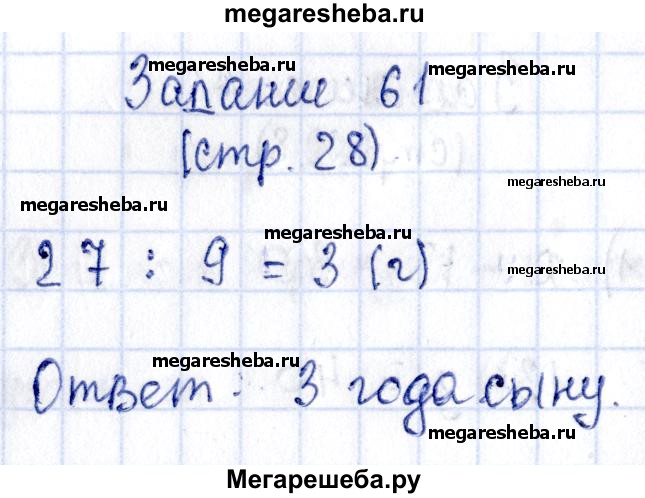 megaresheba.ru
megaresheba.ru megaresheba.ru
Задание 61
(стр. 28)
megaresheba.ru
megaresheba.ru
megaresheba.ru
27 : 9 = 3 (г)
megaresheba.ru
megaresheba.ru
Ответ: 3 года сыну.
megaresheba.ru
Мегарешеба.ру